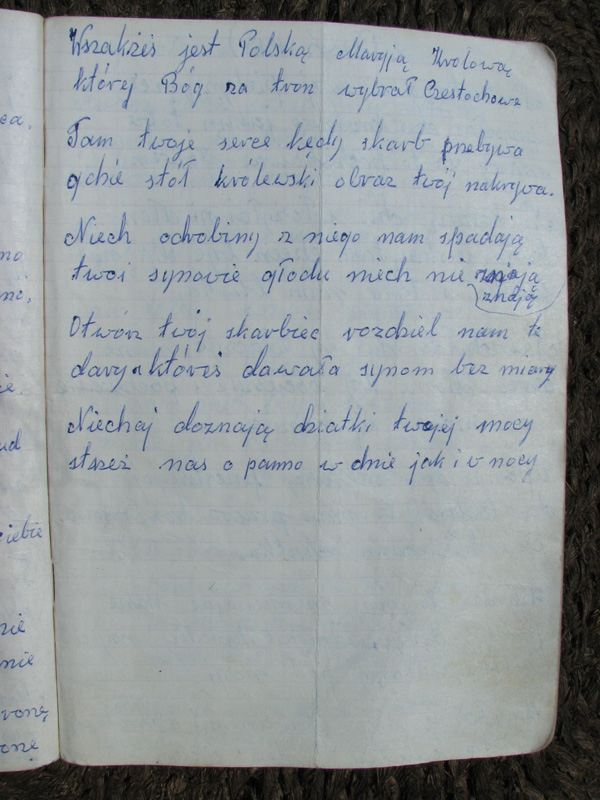 Wszakżeś jest Polską Maryją Krolową
której Bóg na tron wybrał Czestochowe
Tam twoje serce kędy skarb przebywa
gdzie stół królewski obraz twój nakrywa.
Niech odrobiny z niego nam spadają
twoi synowie głodu niech nie
znają
Otwórz twój skarbiec rozdziel nam te
dary któreś dawała synom bez miary
Niechaj doznają dziatki twojej mocy
strzeż nas o panno w dnie jak i v nocy